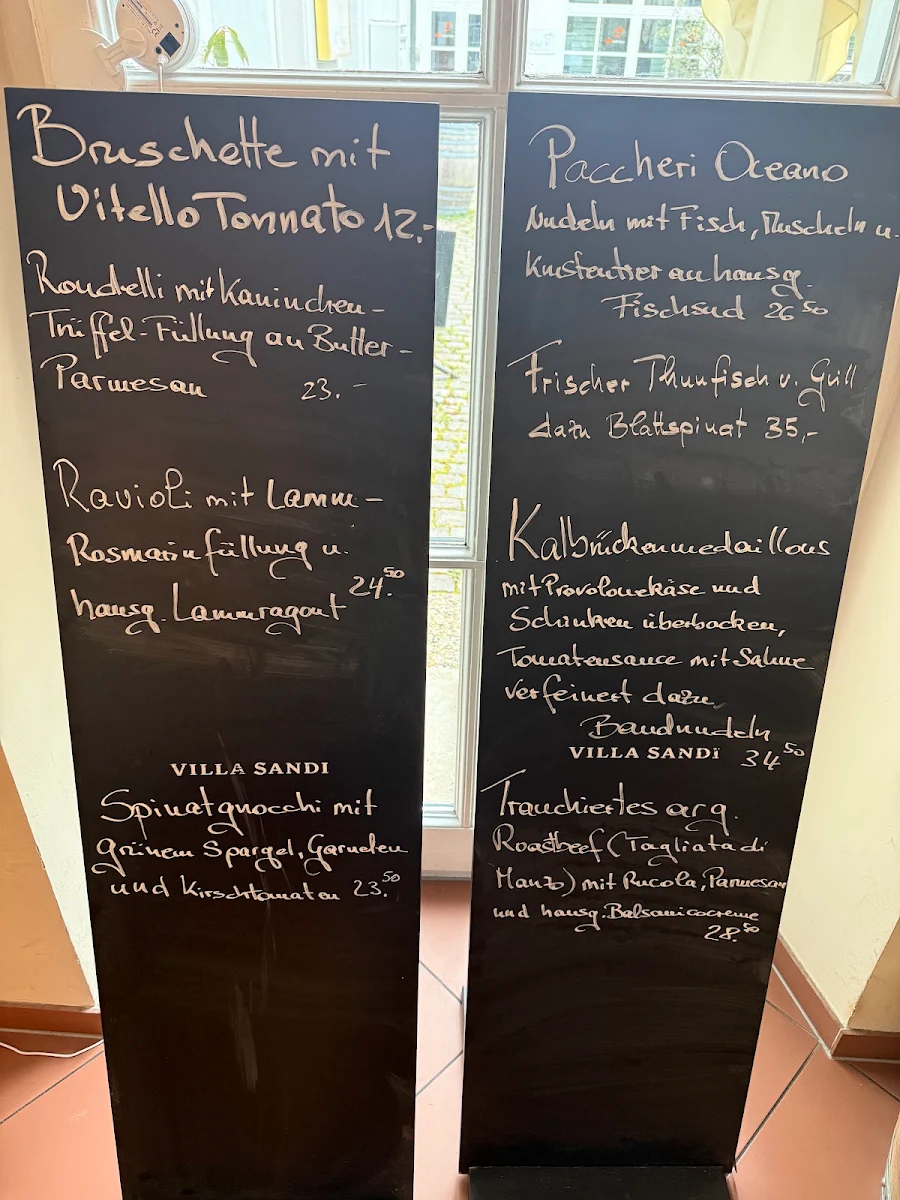 Bruschette mit
Vitello Tonnato 12.-
Rondelli mit Kaninchen-
Trüffel-Füllung an Butter-
Parmesan 23.-
Ravioli mit Lamm-
Rosmarinfüllung u.
hausg. Lammragout 24.50
VILLA SANDI
Spinatgnocchi mit
grünem Spargel, Garnelen
und Kirschtomaten 23.50
Paccheri Oceano
Nudeln mit Fisch, Muscheln u.
Krustentier an hausg.
Fischsud 26.50
Frischer Thunfisch v. Grill
dazu Blattspinat 35,-
Kalbrückenmedaillons
mit Provolonekäse und
Schinken überbacken,
Tomatensauce mit Sahne
verfeinert dazu
Bandnudeln
VILLA SANDI 34.50
Tranchiertes arg.
Roastbeef (Tagliata di
Manzo) mit Rucola, Parmesan
und hausg. Balsamicocreme
28.50